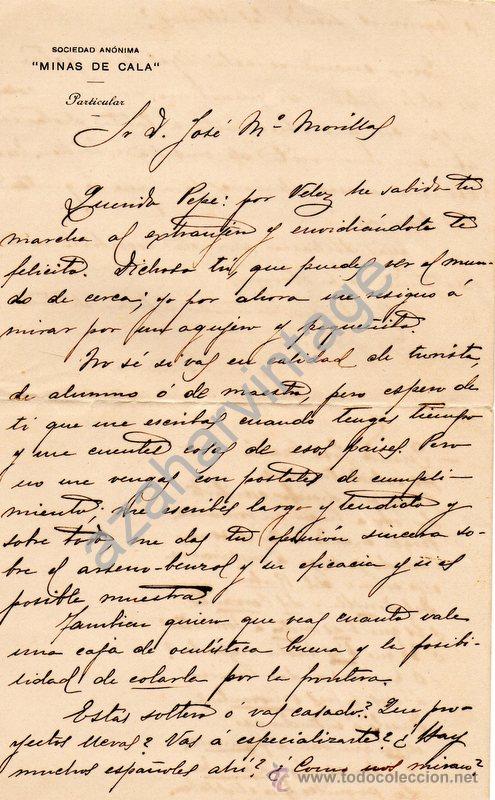 SOCIEDAD ANÓNIMA
"MINAS DE CALA"
Particular
Sr D. José Mª Morillas
Querido Pepe: por Veloz he sabido tu
marcha al extranjero y envidiándote te
felicito. Dichoso tú, que puedes ver el mun-
do de cerca; yo por ahora me resigno á
mirar por un agujero y pequeñito.
No sé si vas en calidad de turista,
de alumno ó de maestro, pero espero de
ti que me escribas cuando tengas tiempo
y me cuentes cosas de esos paises. Pero
no me vengas con postales de cumpli-
miento; me escribes largo y tendido y
sobre todo me das tu opinión sincera so-
bre el arseno-benzol y su eficacia y si es
posible muestra.
Tambien quiero que veas cuanto vale
una caja de oculística buena y la posibi-
lidad de colarla por la frontera.
Estás soltero ó vas casado? Que pro-
yectos llevas? Vas á especializarte? ¿Hay
muchos españoles ahí? ¿Como nos miran?
azaharvintage
www.todocoleccion.net